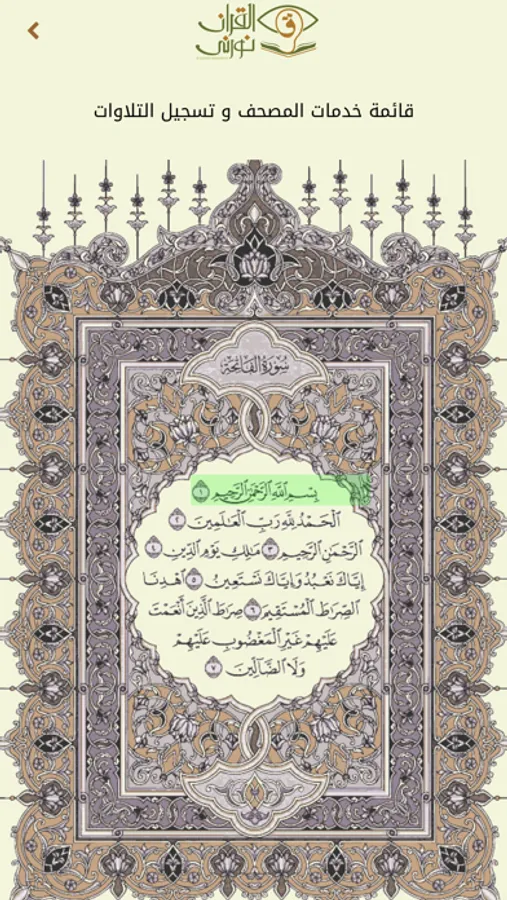 القرآن
نورني
قائمة خدمات المصحف و تسجيل التلاوات
سُورَةُ الفَاتِحَةِ
بِسْمِ اللَّهِ الرَّحْمَٰنِ الرَّحِيمِ ١
الْحَمْدُ لِلَّهِ رَبِّ الْعَالَمِينَ ٢
الرَّحْمَٰنِ الرَّحِيمِ ٣ مَالِكِ يَوْمِ الدِّينِ ٤
إِيَّاكَ نَعْبُدُ وَإِيَّاكَ نَسْتَعِينُ ٥ اهْدِنَا
الصِّرَاطَ الْمُسْتَقِيمَ ٦ صِرَاطَ الَّذِينَ أَنْعَمْتَ
عَلَيْهِمْ غَيْرِ الْمَغْضُوبِ عَلَيْهِمْ
وَلَا الضَّالِّينَ ٧